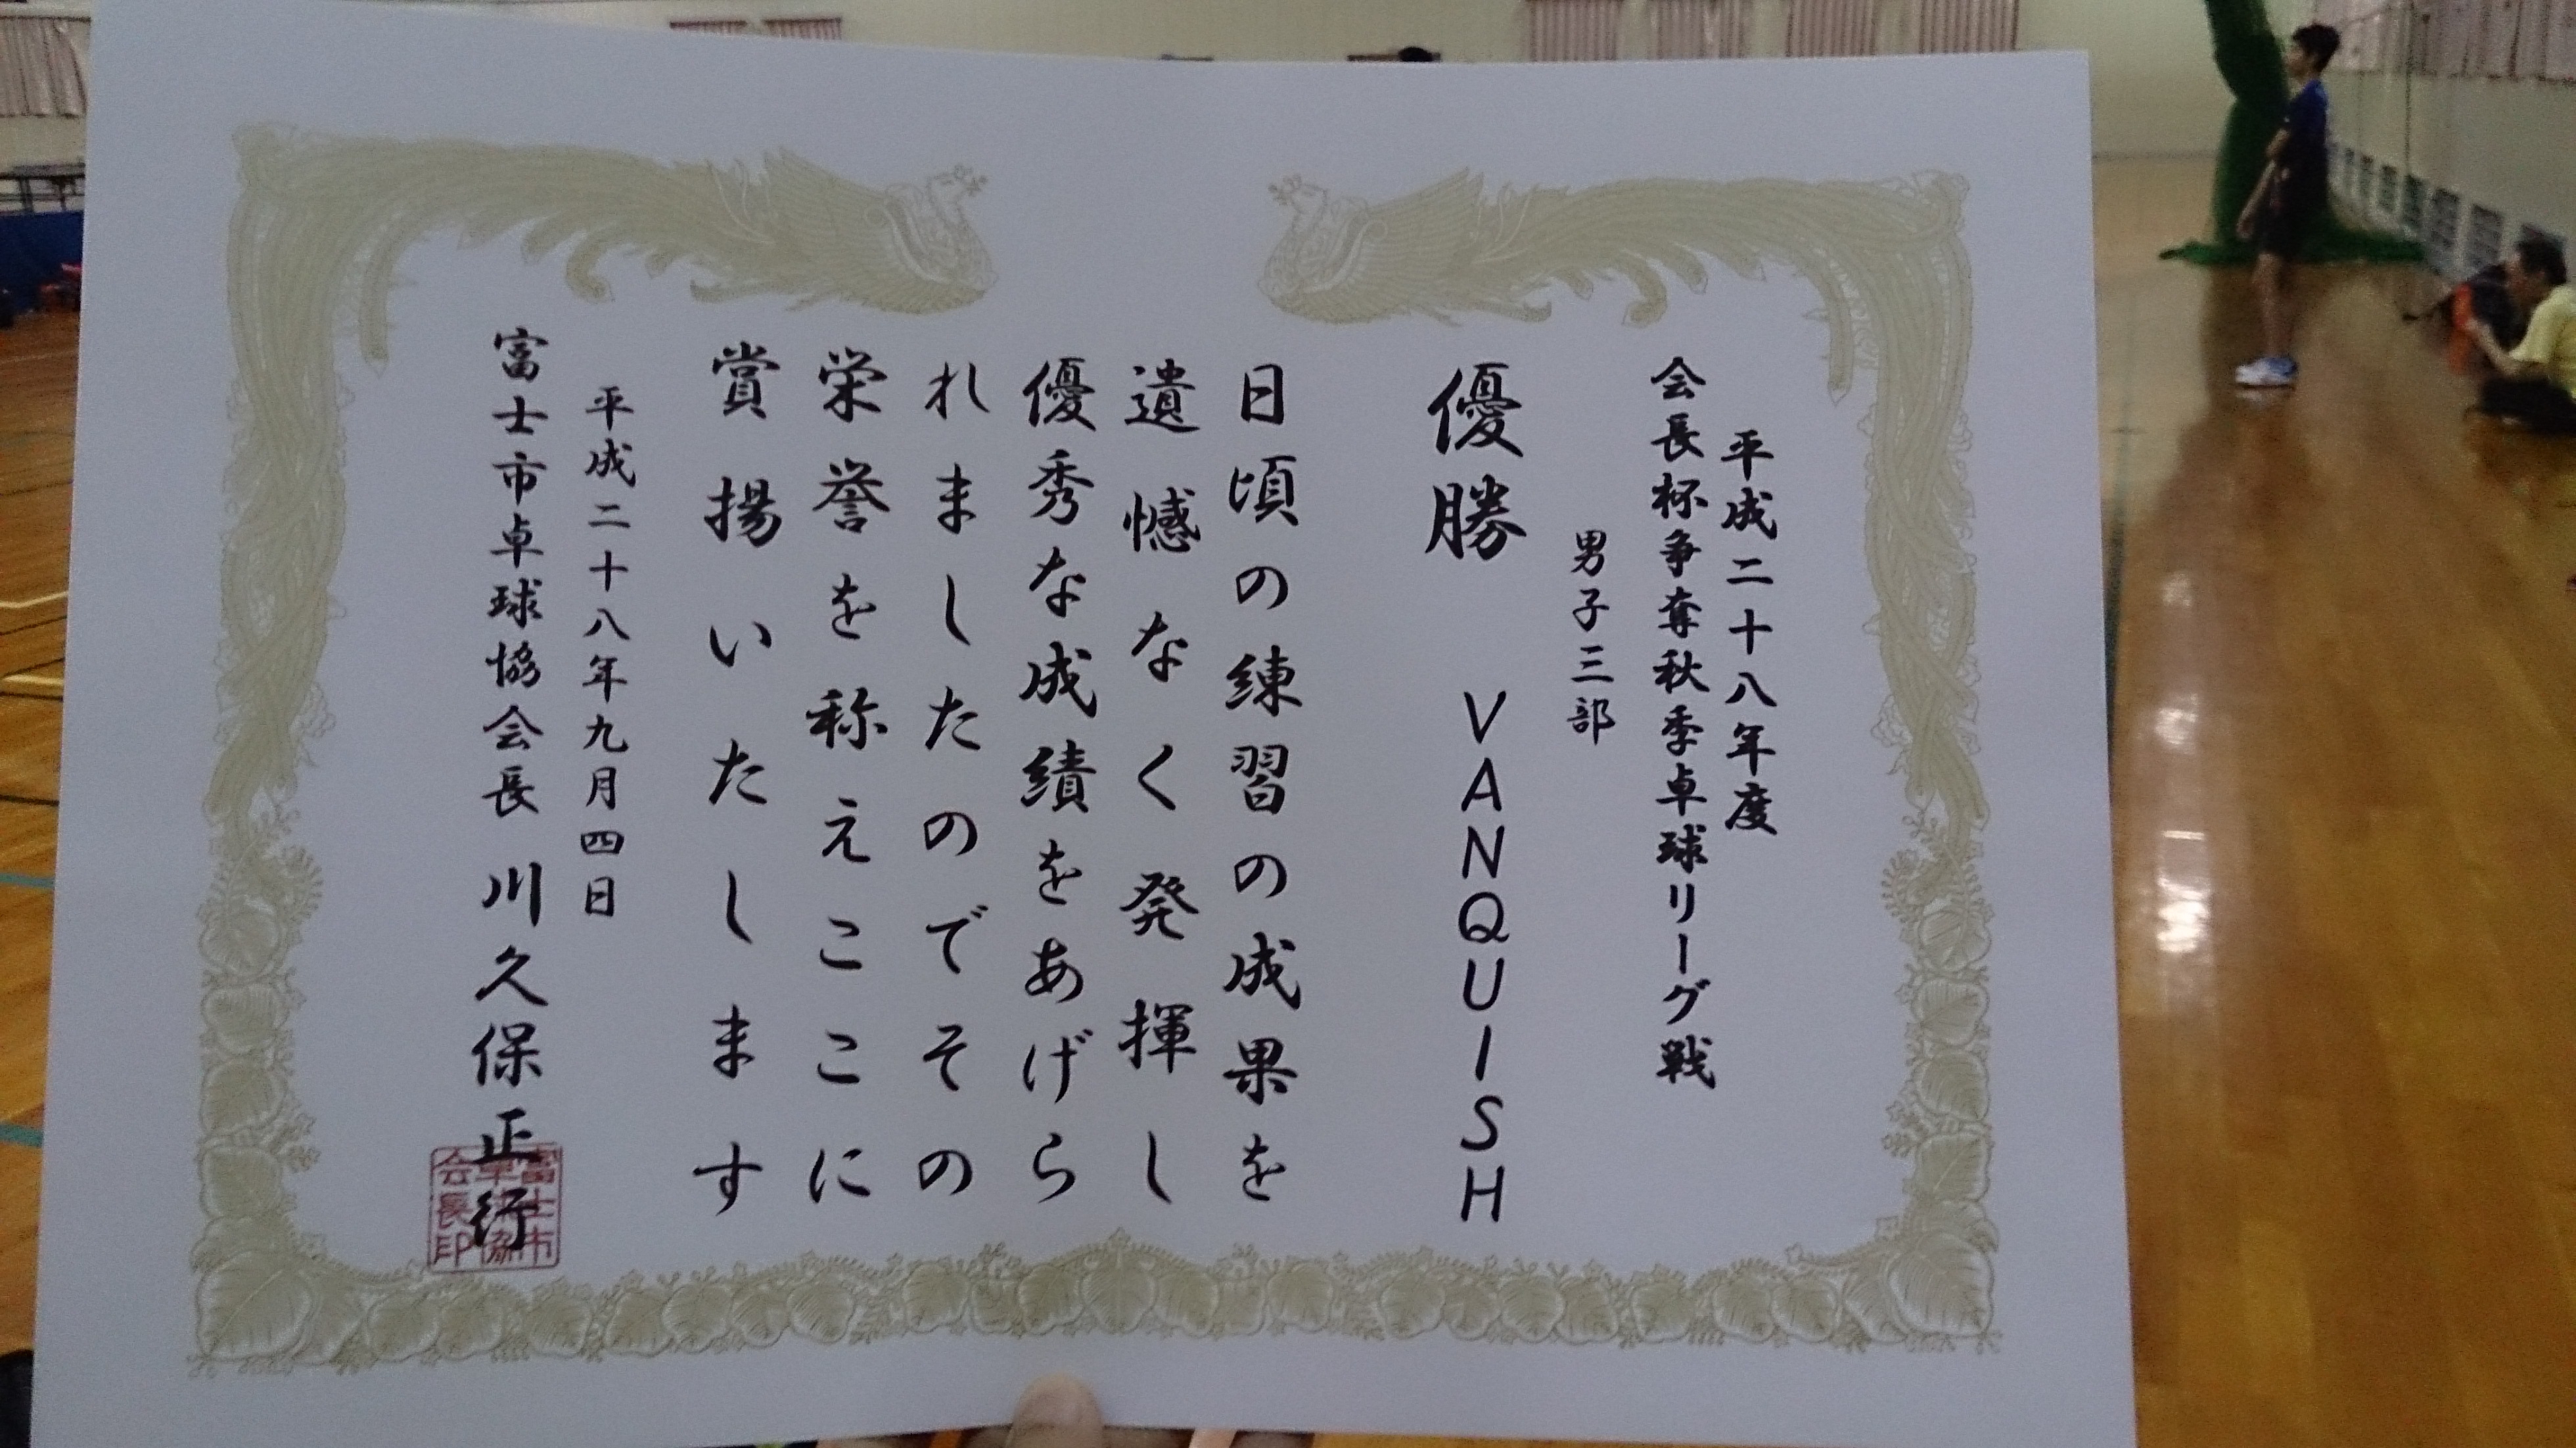 平成二十八年度
会長杯争奪秋季卓球リーグ戦
男子三部
優勝 VANQUISH
日頃の練習の成果を
遺憾なく発揮し
優秀な成績をあげら
れましたのでその
栄誉を称えここに
賞揚いたします
平成二十八年九月四日
富士市卓球協会長 川久保正行
富士市
卓球協
会長印